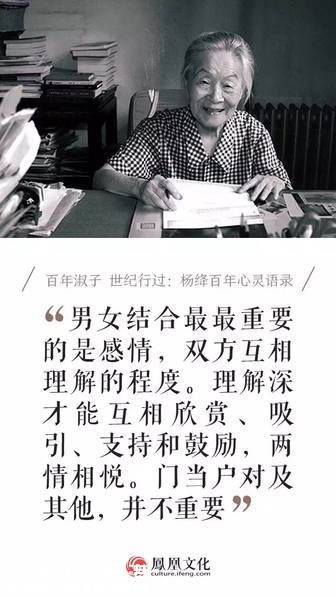 百年淑子 世纪行过：杨绛百年心灵语录
“男女结合最最重要
的是感情，双方互相
理解的程度。理解深
才能互相欣赏、吸
引、支持和鼓励，两
情相悦。门当户对及
其他，并不重要”
凤凰文化
culture.ifeng.com